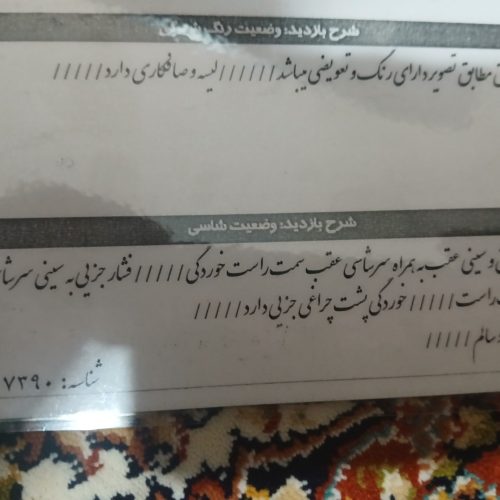 شرح بازدید: وضعیت رنگ
مطابق تصویر دارای رنگ و تعویضی میباشد ////// لیسه و صافکاری دارد /////
شرح بازدید: وضعیت شاسی
و سینی عقب به همراه سرشاسی عقب سمت راست خوردگی ///// فشار جزیی به سینی
///// خوردگی پشت چراغی جزیی دارد /////
سالم /////
شناسه: ۷۳۹۰